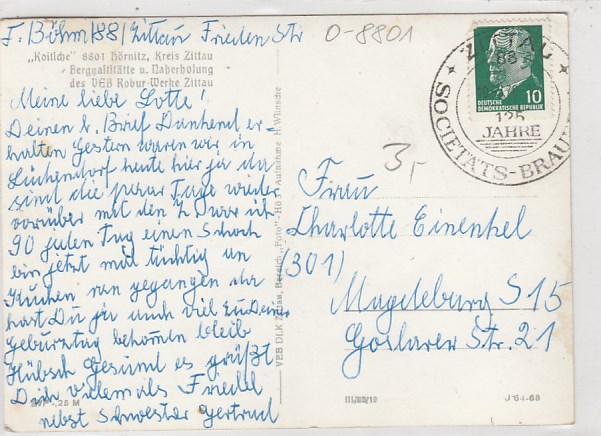 F. Böhm 88/ Zittau Frieden Str
O-8801
"Koitsche" 8801 Hörnitz, Kreis Zittau
Berggaststätte u. Naherholung
des VEB Robur-Werke Zittau
Meine liebe Lotte!
Deinen l. Brief Dankend er-
halten Gestern waren wir in
Lückendorf heute hier ja da
sind die paar Tage wieder
vorüber mit den
90 jeden Tag einen Schock
bin jetzt mal tüchtig an
Kuchen ran gegangen da
hast Du ja auch viel zu Deinen
Geburtstag bekommen bleib
Hübsch Gesund es grüßt
Dich vielemals Friedel
nebst Schwester Gertrud
25 M
VEB DLK Zittau, Bereich "Foto" Aufnahme H. Wünsche
ZITTAU
125
JAHRE
SOCIETÄTS-BRAUE
DEUTSCHE
DEMOKRATISCHE REPUBLIK
10
3,-
Frau
Charlotte Einenkel
(301)
Magdeburg S 15
Goslarer Str. 21
III/28/19